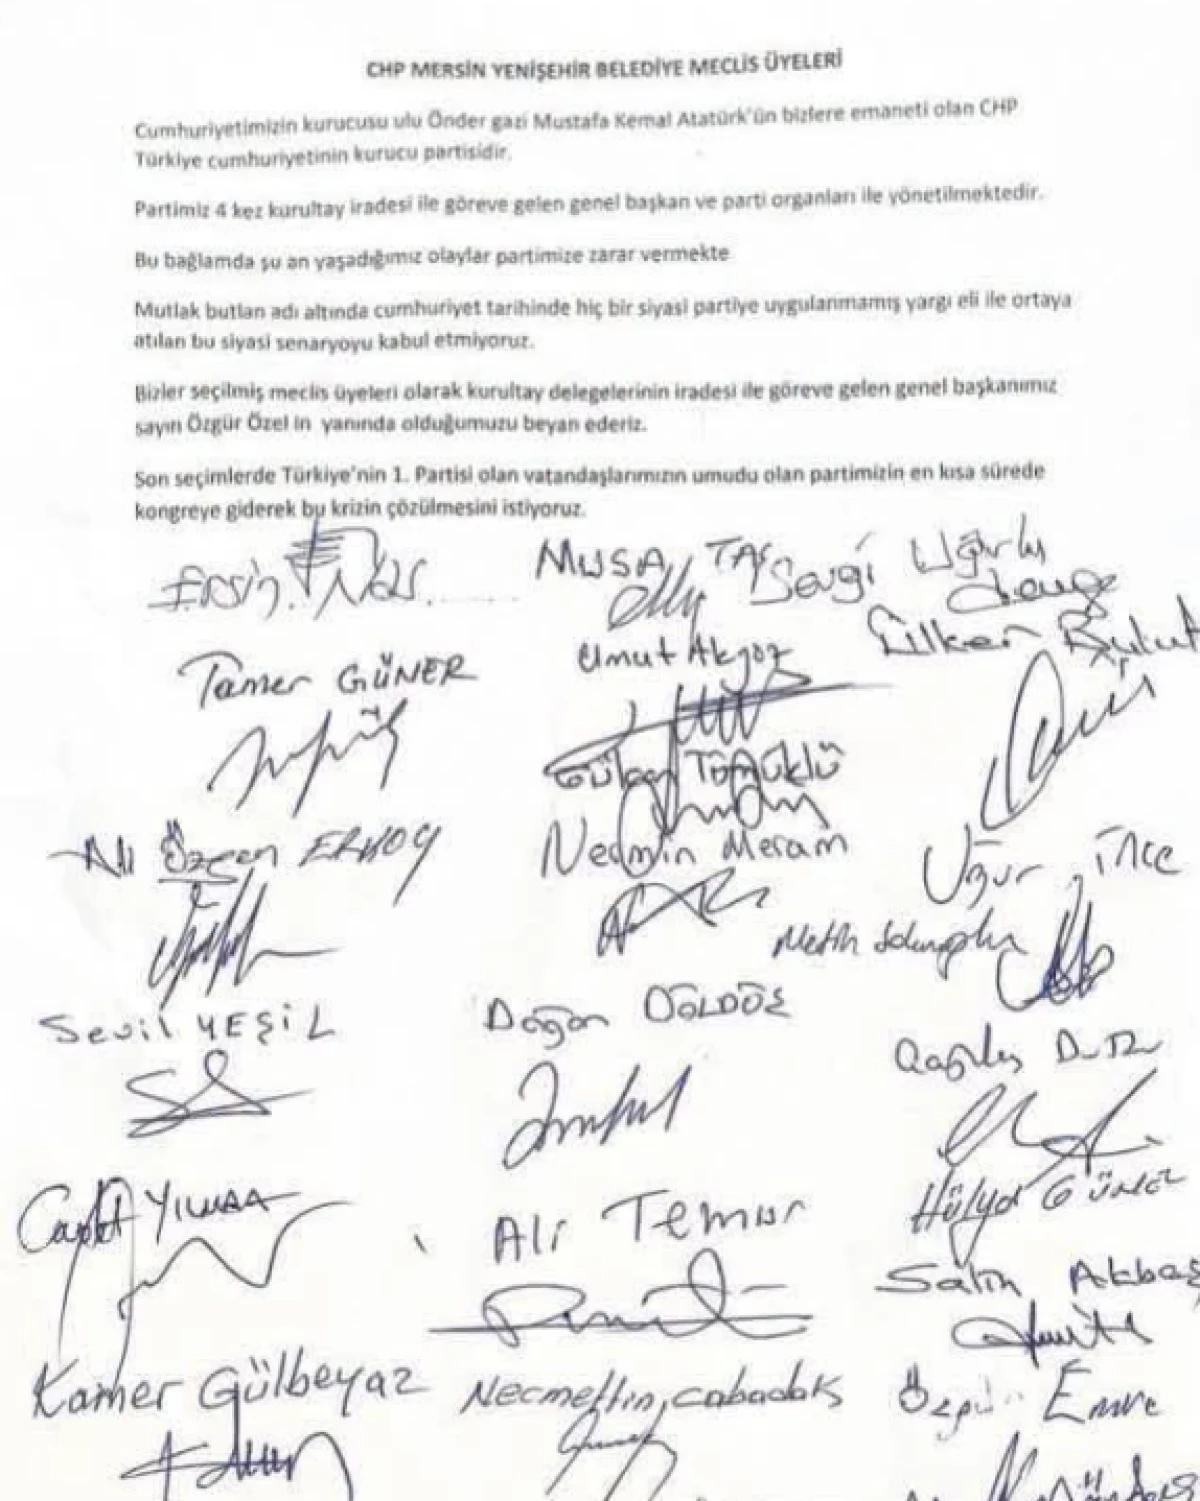 CHP MERSİN YENİŞEHİR BELEDİYE MECLİS ÜYELERİ
Cumhuriyetimizin kurucusu ulu Önder gazi Mustafa Kemal Atatürk'ün bizlere emaneti olan CHP
Türkiye cumhuriyetinin kurucu partisidir.
Partimiz 4 kez kurultay iradesi ile göreve gelen genel başkan ve parti organları ile yönetilmektedir.
Bu bağlamda şu an yaşadığımız olaylar partimize zarar vermekte
Mutlak butlan adı altında cumhuriyet tarihinde hiç bir siyasi partiye uygulanmamış yargı eli ile ortaya
atılan bu siyasi senaryoyu kabul etmiyoruz.
Bizler seçilmiş meclis üyeleri olarak kurultay delegelerinin iradesi ile göreve gelen genel başkanımız
sayın Özgür Özel in yanında olduğumuzu beyan ederiz.
Son seçimlerde Türkiye'nin 1. Partisi olan vatandaşlarımızın umudu olan partimizin en kısa sürede
kongreye giderek bu krizin çözülmesini istiyoruz.
Ersin
MUSA TAŞ
Sevgi Uğurlu
Tamer GÜNER
Umut Akgöz
İlker Bulut
Gülçen Tömüklü
Ali Özgen ERKOÇ
Nedmin Meram
Uğur İnce
Metin
Sevil YEŞİL
Doğan
YILMAZ
Ali Temur
Hülya GÜNEL
Salih Akbaş
Kamer Gülbeyaz
Necmettin Cabadak
Emre